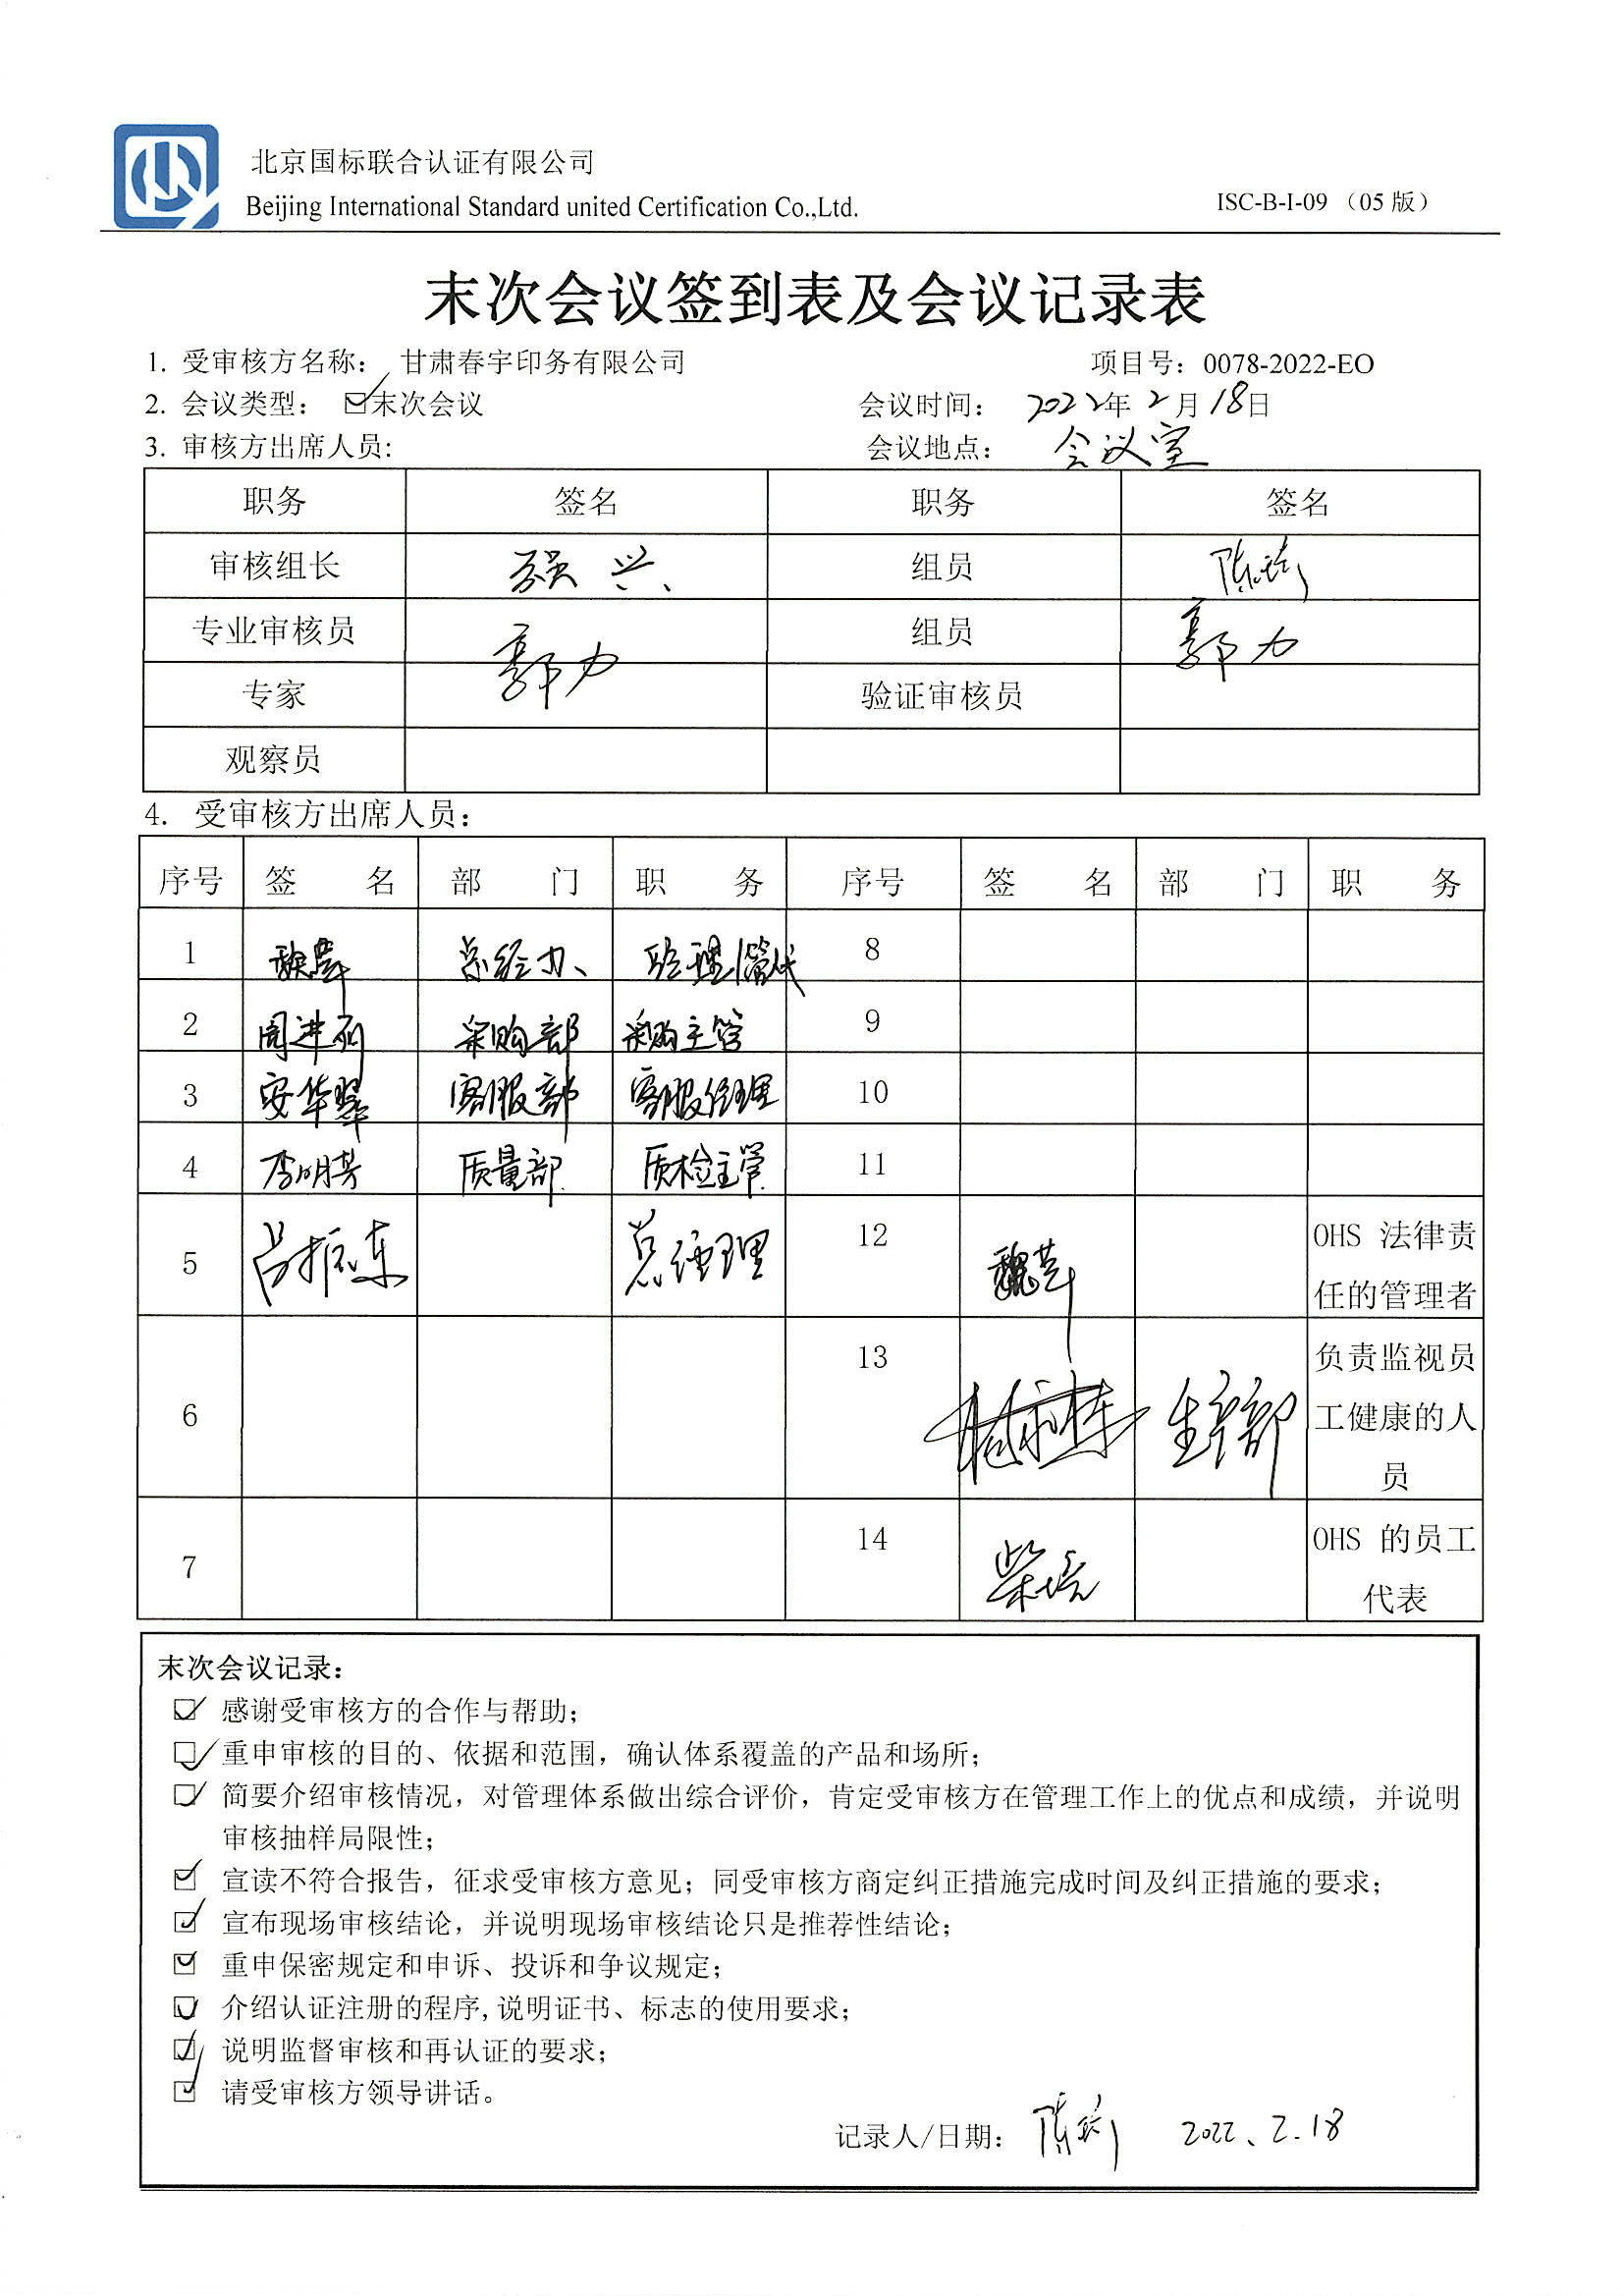 北京国标联合认证有限公司
Beijing International Standard united Certification Co.,Ltd.
ISC-B-I-09 （05 版）
末次会议签到表及会议记录表
1. 受审核方名称： 甘肃春宇印务有限公司 项目号：0078-2022-EO
2. 会议类型： ☑末次会议 会议时间： 2022年2月18日
3. 审核方出席人员: 会议地点： 会议室
职务 签名 职务 签名
审核组长 强兴 组员 陈
专业审核员 郭力 组员 郭力
专家 验证审核员
观察员
4. 受审核方出席人员：
序号 签 名 部 门 职 务 序号 签 名 部 门 职 务
1 总经办 经理/管代 8
2 周进 采购部 采购主管 9
3 安华翠 客服部 客服经理 10
4 李明芳 质量部 质检主管 11
5 吕振东 总经理 12 魏 OHS 法律责
任的管理者
6 13 生产部 负责监视员
工健康的人
员
7 14 柴 OHS 的员工
代表
末次会议记录：
☑ 感谢受审核方的合作与帮助；
☑ 重申审核的目的、依据和范围，确认体系覆盖的产品和场所；
☑ 简要介绍审核情况，对管理体系做出综合评价，肯定受审核方在管理工作上的优点和成绩，并说明
审核抽样局限性；
☑ 宣读不符合报告，征求受审核方意见；同受审核方商定纠正措施完成时间及纠正措施的要求；
☑ 宣布现场审核结论，并说明现场审核结论只是推荐性结论；
☑ 重申保密规定和申诉、投诉和争议规定；
☑ 介绍认证注册的程序,说明证书、标志的使用要求；
☑ 说明监督审核和再认证的要求；
☑ 请受审核方领导讲话。
记录人/日期： 陈 2022、2.18